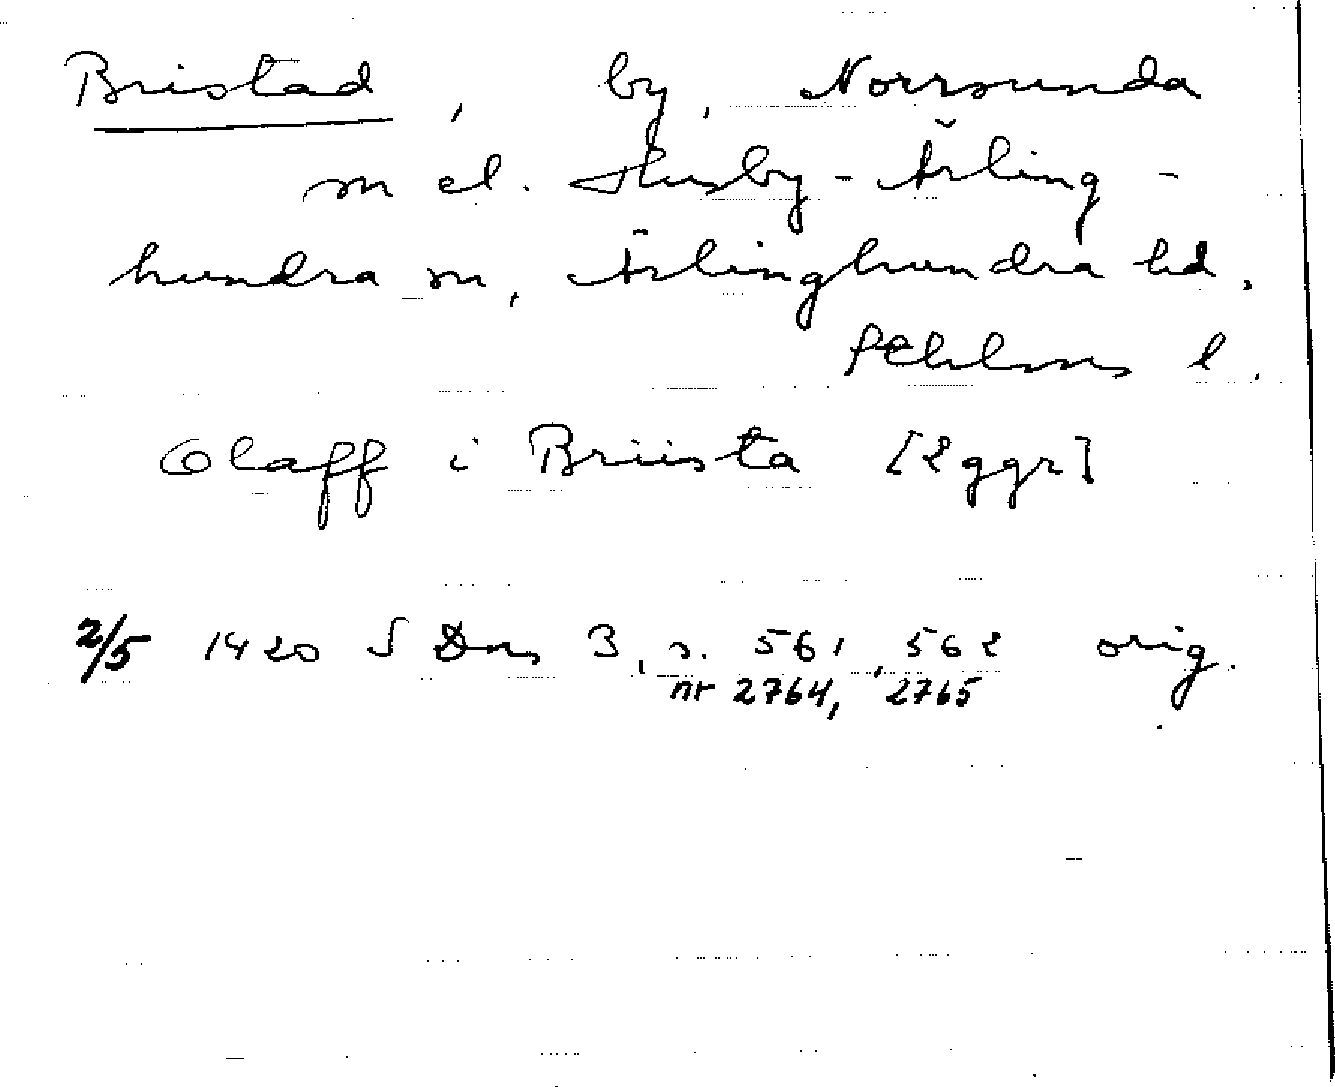 Bristad, by, Norrsunda
sn el. Husby-Ärling-
hundra sn, Ärlinghundra hd,
Sthlms l.
Olaff i Briista [2 ggr]
2/5 1420 SDns 3, s. 561, 562 orig.
nr 2764, 2765